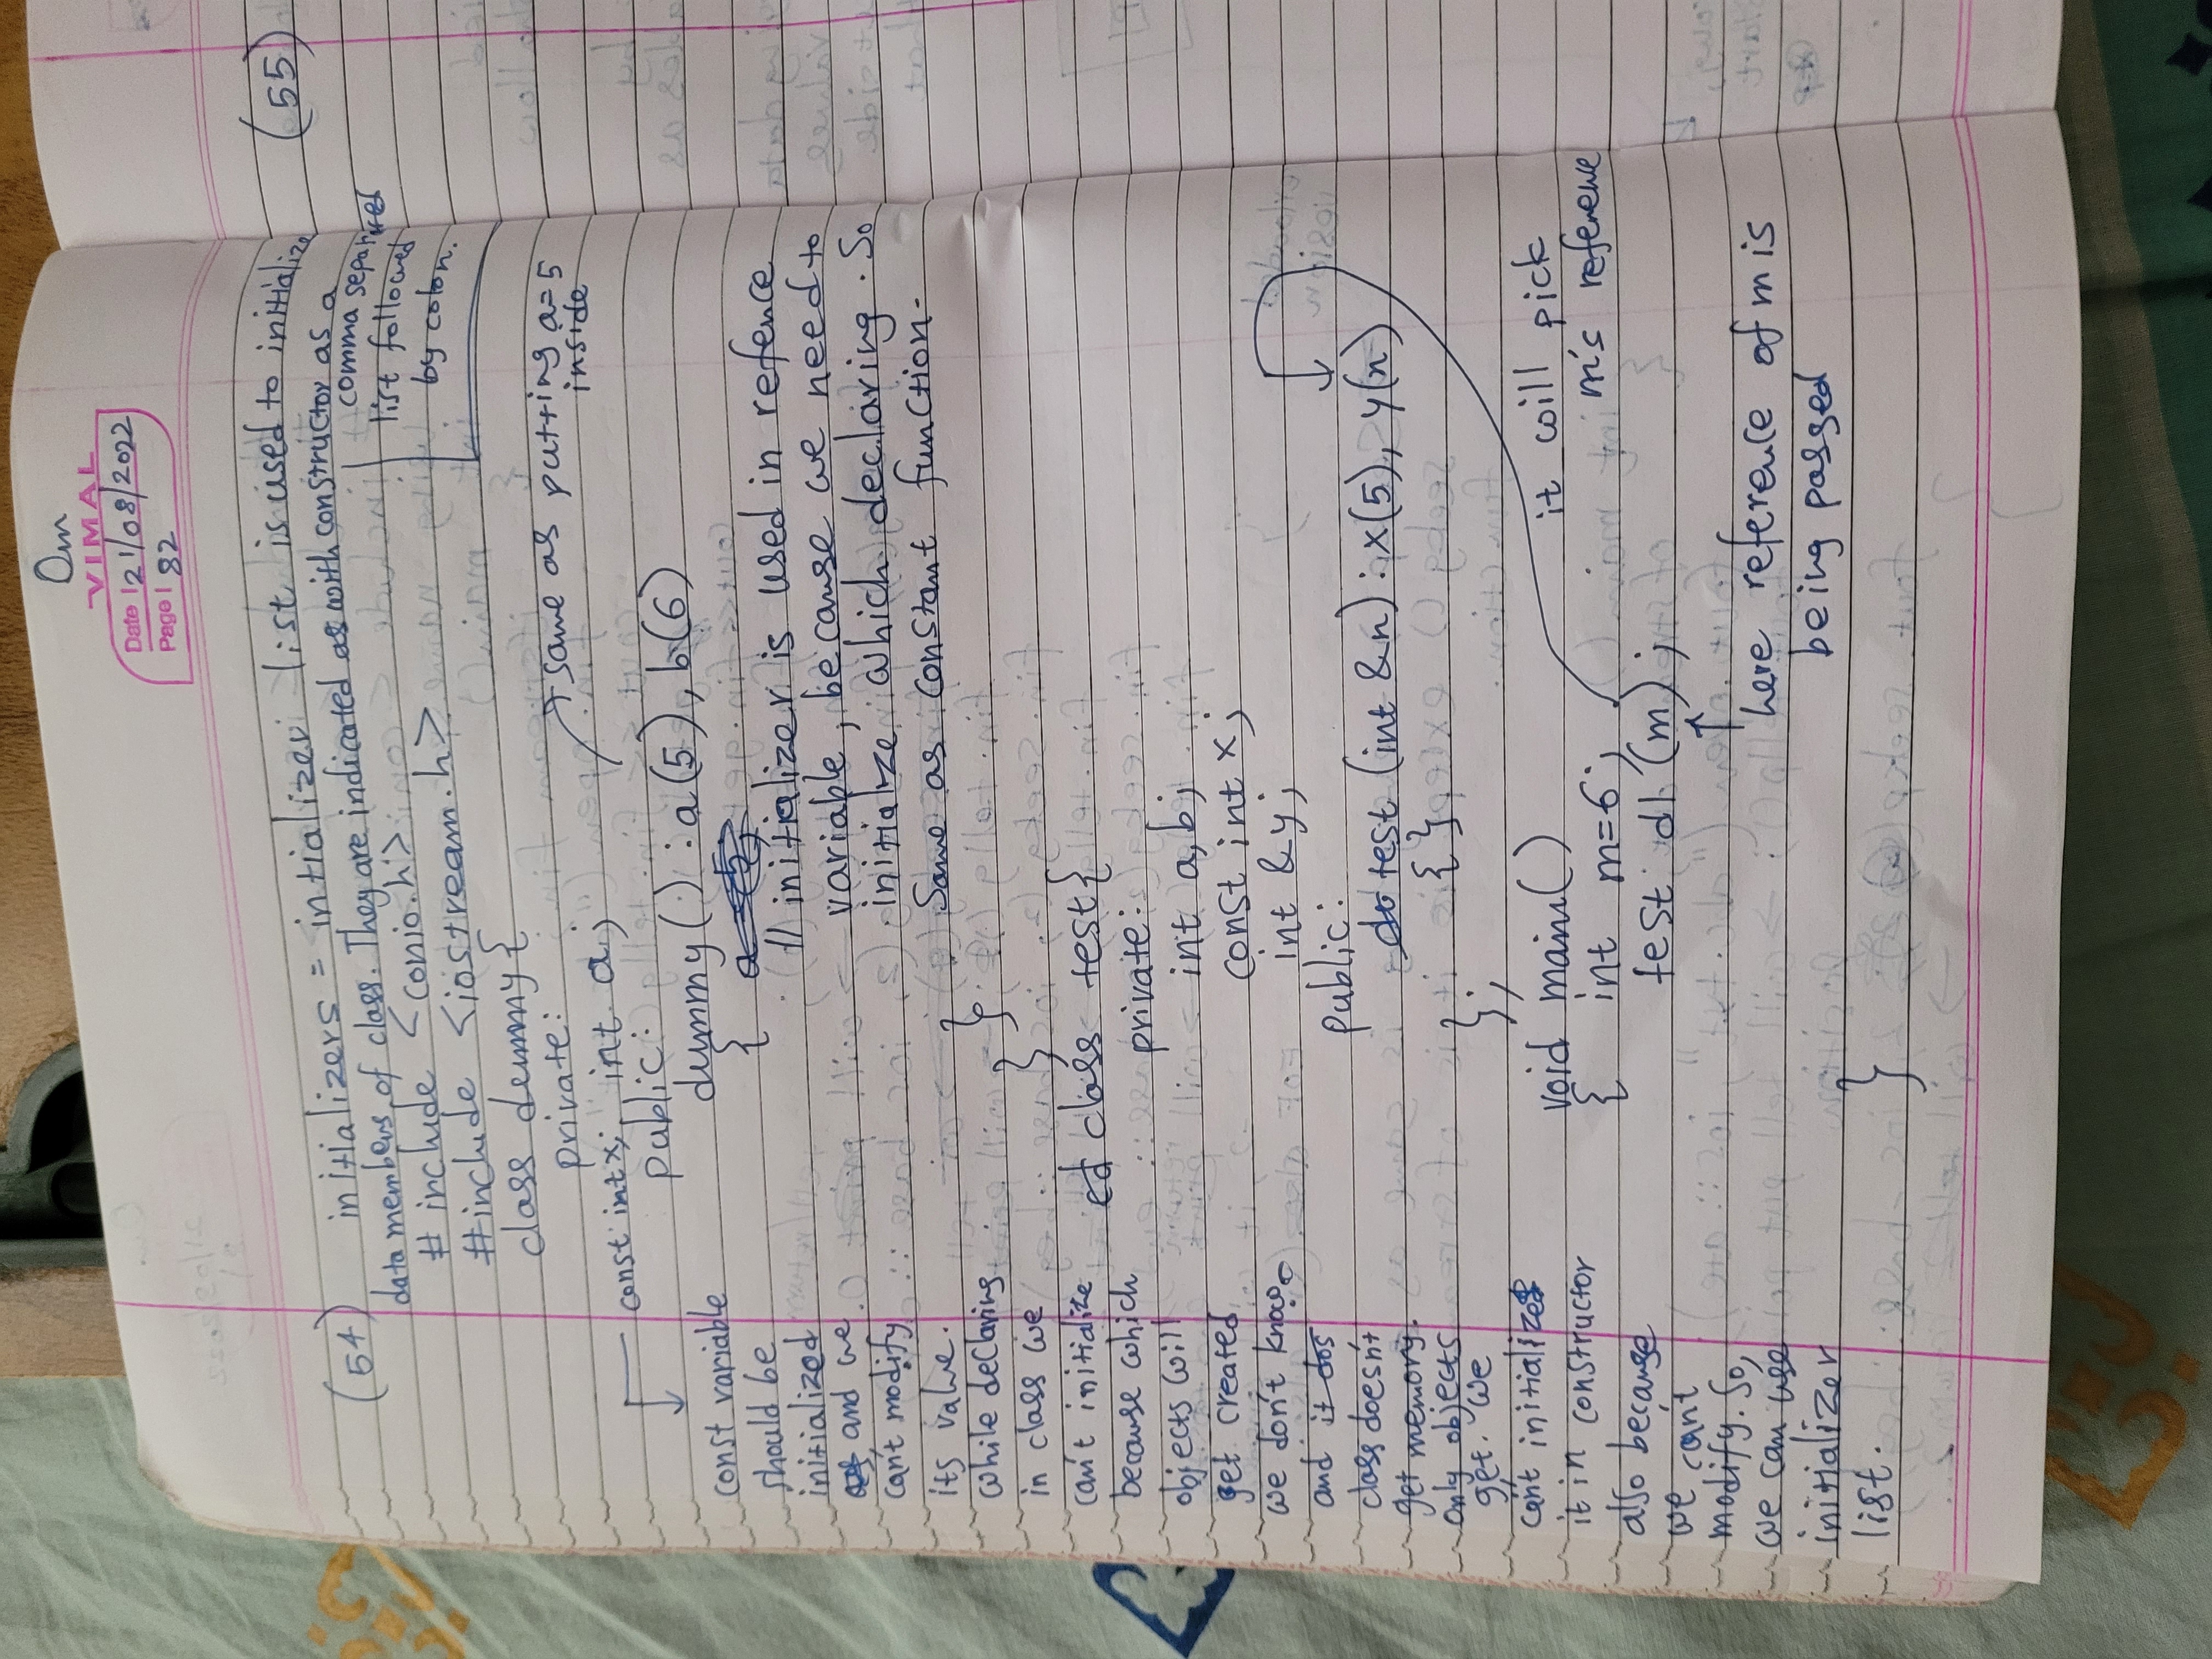 Om
VIMAL
Date 21/08/2022
Page 82
(54) initializers = intializer list is used to initialize
data members of class. They are indicated as with constructor as a
comma separated
list followed
by colon.
# include <conio.h>
#include <iostream.h>
class dummy {
private:
const int x; int a;
public:
same as putting a=5
inside
dummy() : a(5), b(6)
{ a = 5;
// initializer is used in refence
variable, because we need to
initialze which declaring. So
Same as constant function.
}
}
class test {
private:
int a, b;
const int x;
int &y;
public:
test (int &n) : x(5), y(n)
{ }
};
void main()
{ int m=6;
test d1 (m);
it will pick
m's reference
here reference of m is
being passed
}
const variable
should be
initialized
and we
can't modify
its value.
while declaring
in class we
can't initialize
because which
objects will
get created
we don't know.
and it dos
class doesn't
get memory.
only objects
get. we
can't initialize
it in constructor
also because
we can't
modify. So,
we can use
initializer
list.
(55)